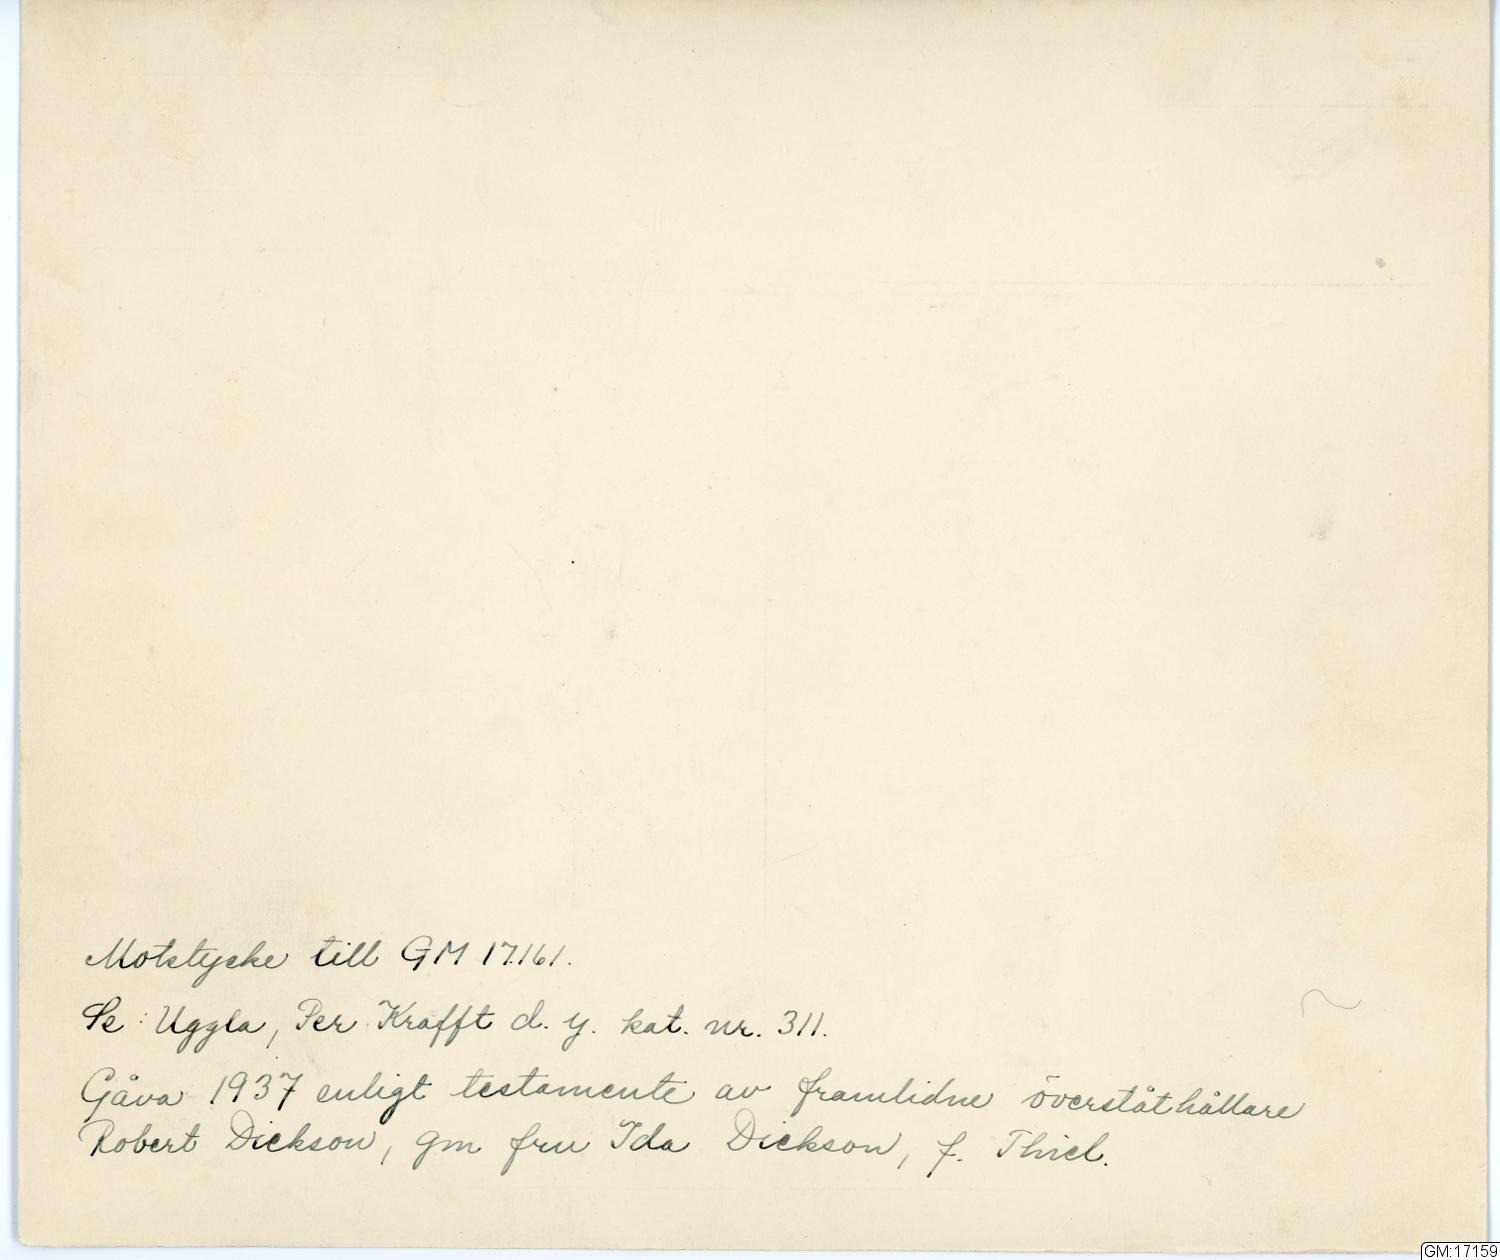 Motstycke till GM 17.161.
Se Uggla, Per Krafft d. y. kat. nr. 311.
Gåva 1937 enligt testamente av framlidne överståthållare
Robert Dickson, gm fru Ida Dickson, f. Thiel.
GM:17159